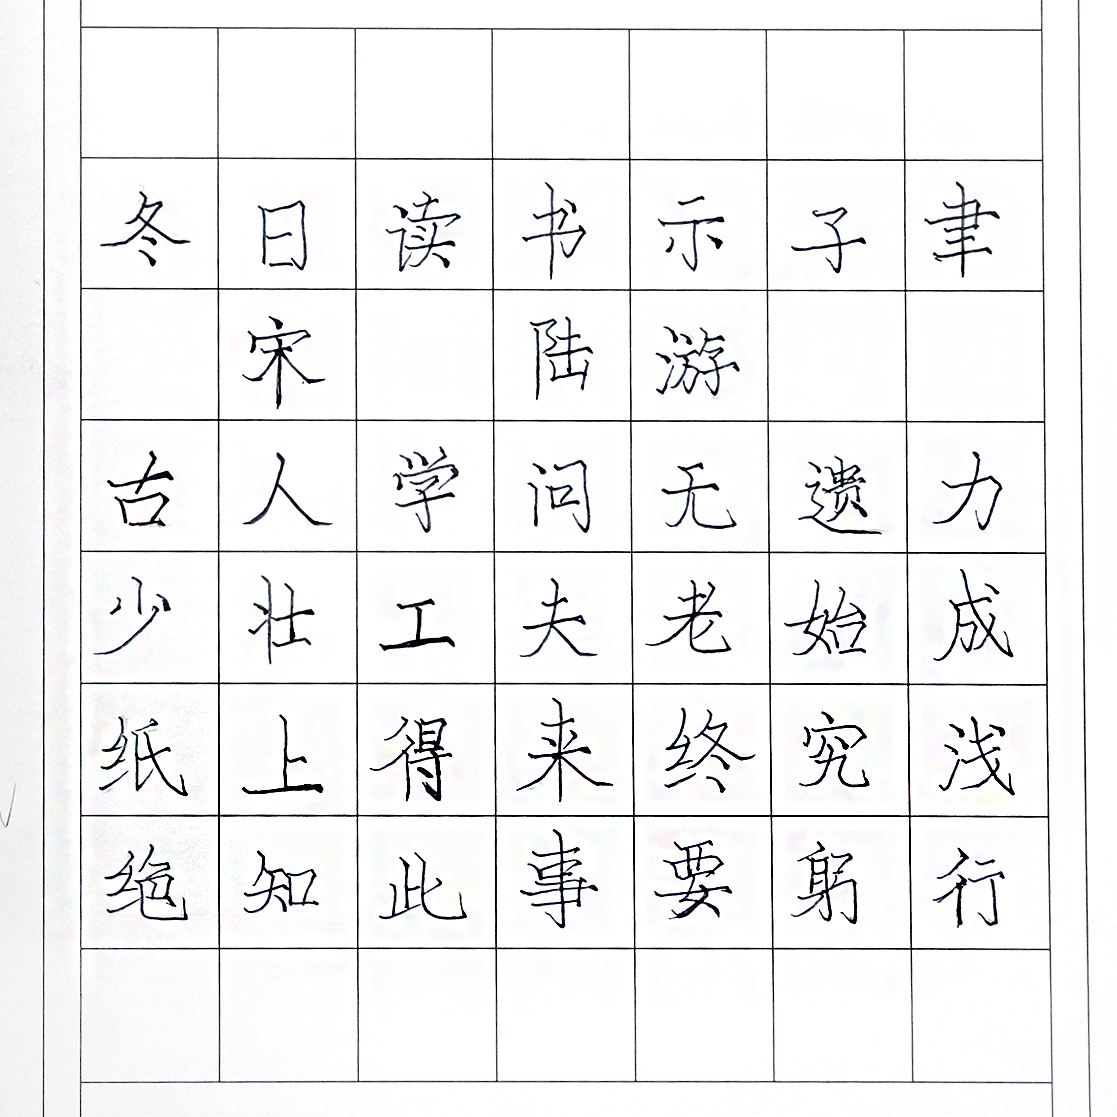 冬日读书示子聿
宋 陆游
古人学问无遗力
少壮工夫老始成
纸上得来终究浅
绝知此事要躬行